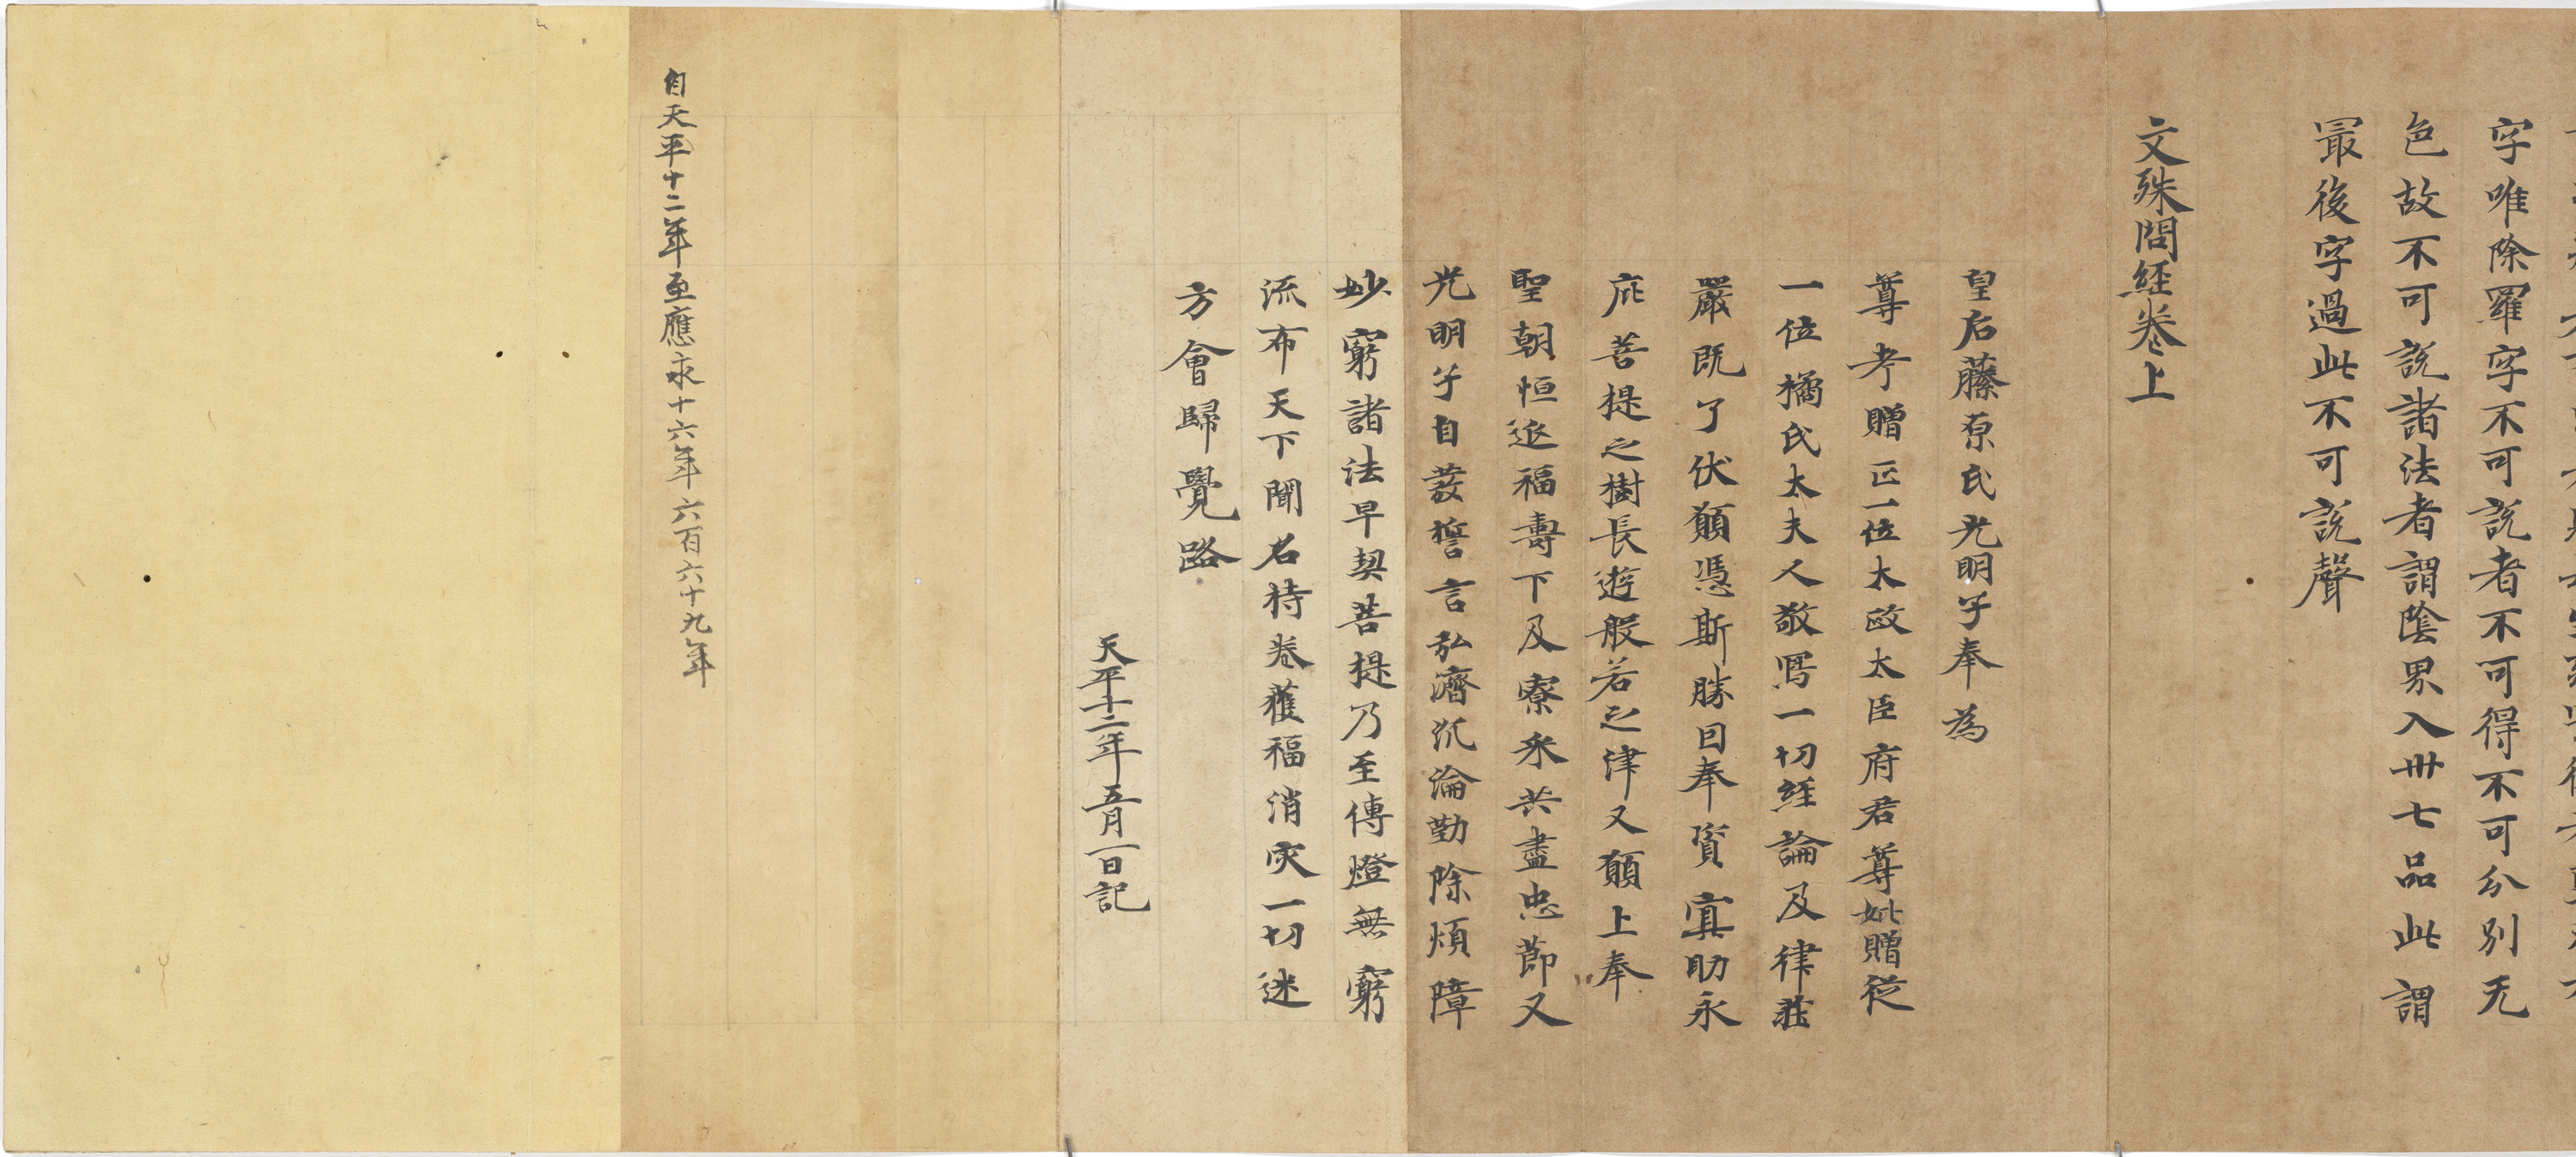 字唯除羅字不可說者不可得不可分別无
色故不可說諸法者謂陰界入卅七品此謂
最後字過此不可說聲
文殊問經卷上
皇后藤原氏光明子奉為
尊考贈正一位太政太臣府君尊妣贈從
一位橘氏太夫人敬寫一切經論及律莊
嚴既了伏願憑斯勝因奉資冥助永
庇菩提之樹長遊般若之津又願上奉
聖朝恒延福壽下及寮采共盡忠節又
光明子自發誓言弘濟沉淪勤除煩障
妙窮諸法早契菩提乃至傳燈無窮
流布天下聞名持卷獲福消灾一切迷
方會歸覺路
天平十二年五月一日記
自天平十二年至應永十六年六百六十九年